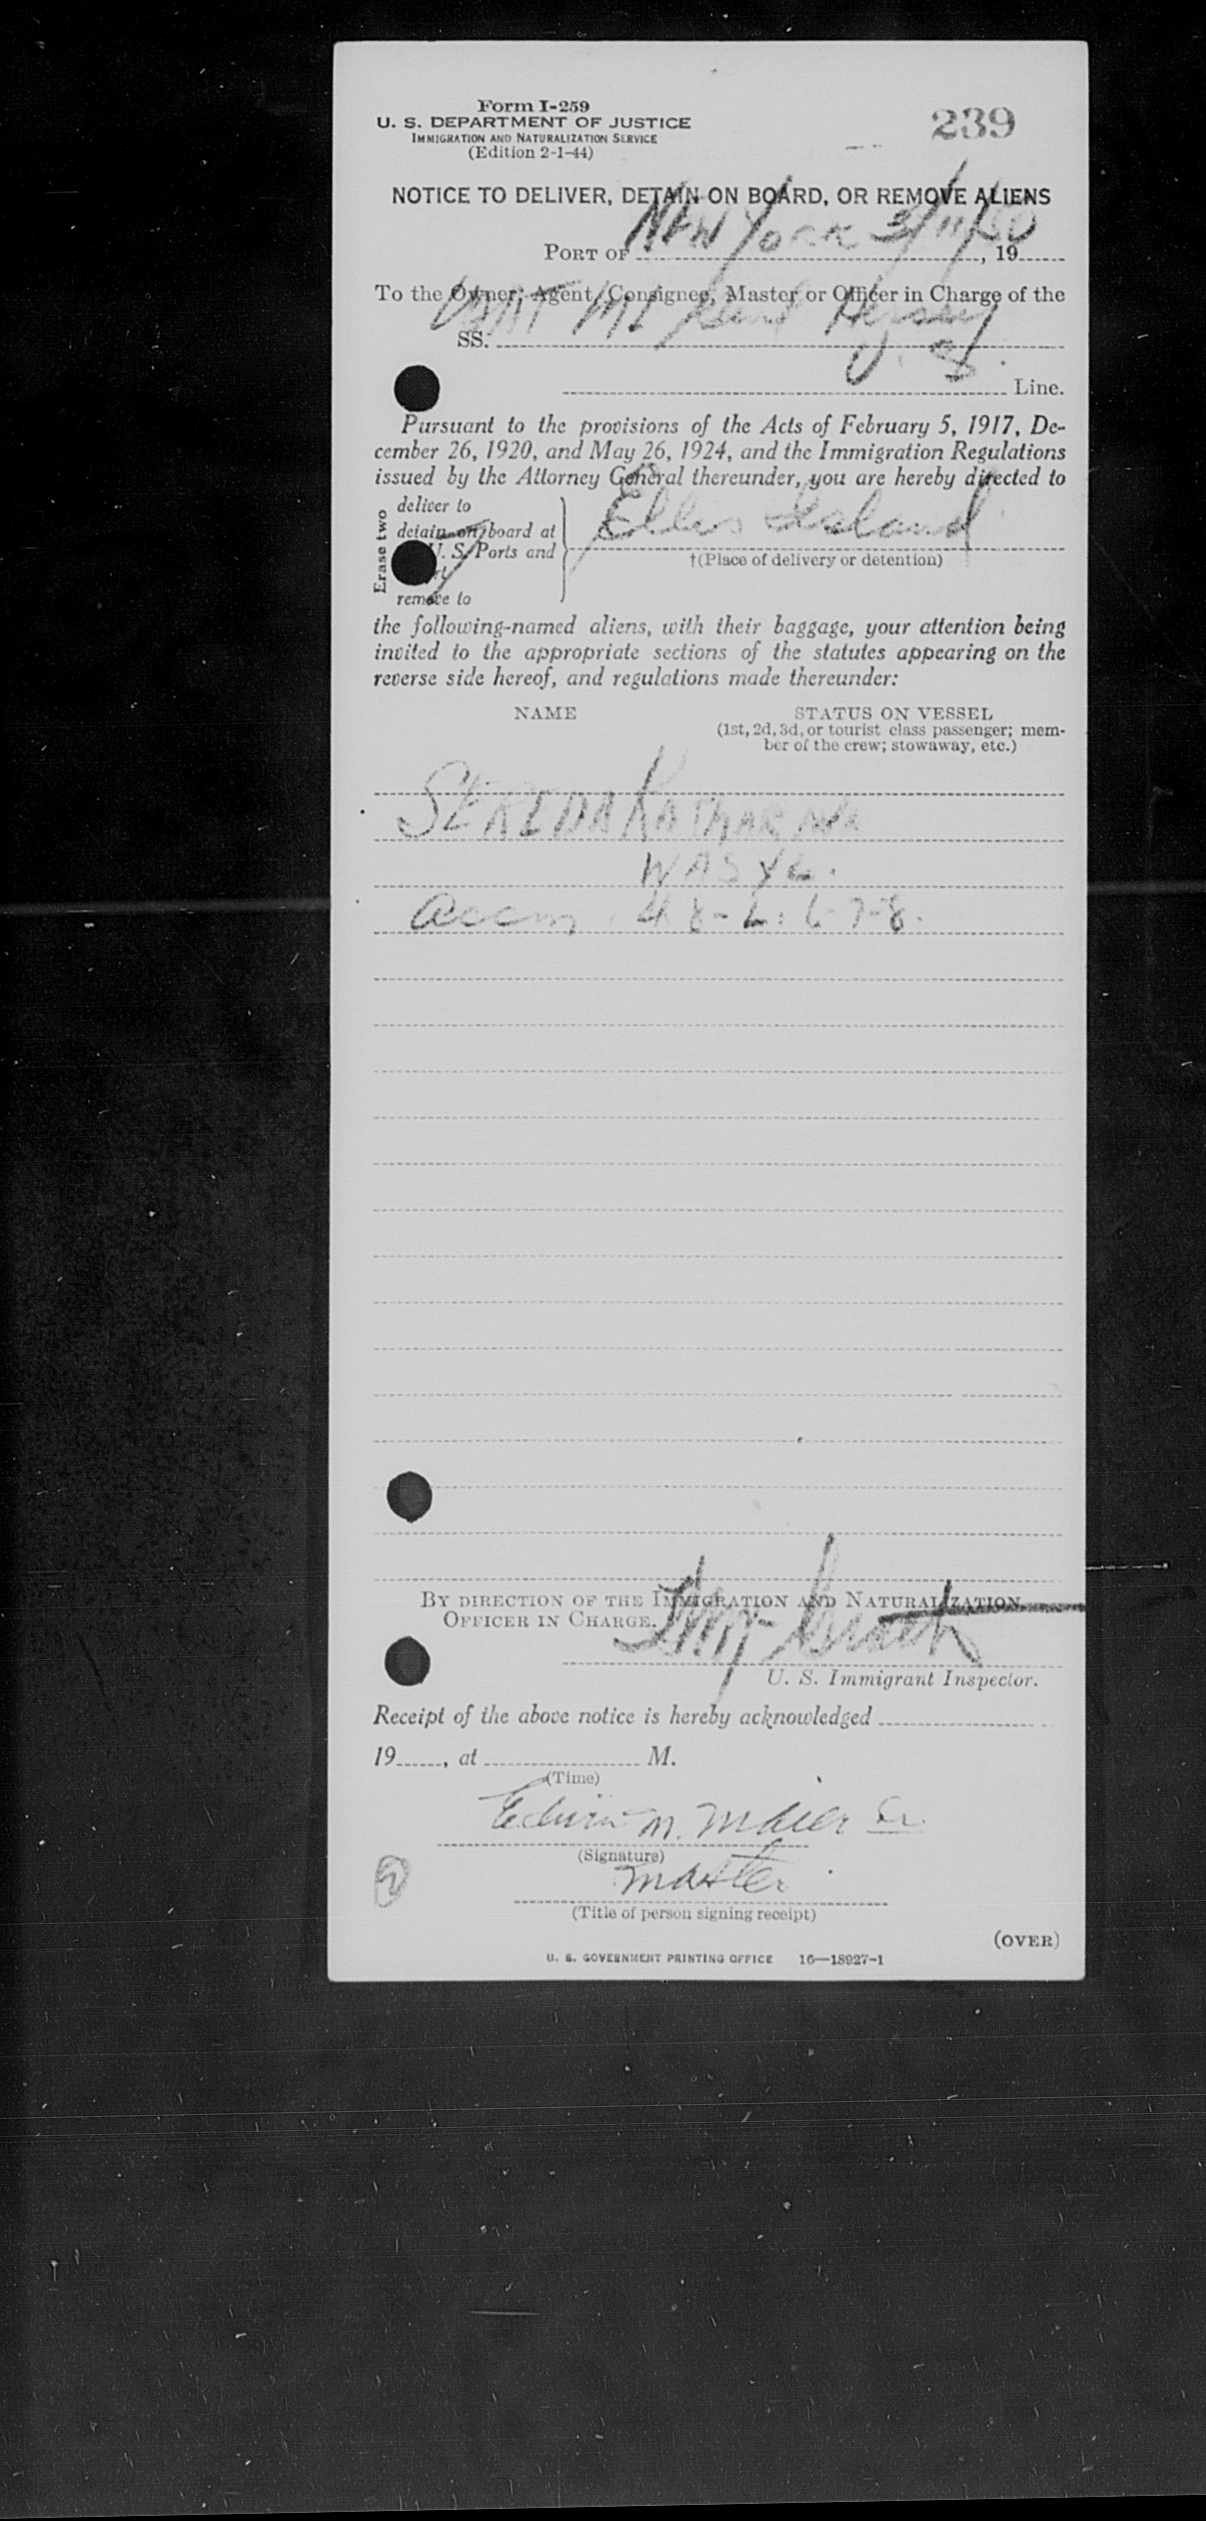 Form I-259
U. S. DEPARTMENT OF JUSTICE
IMMIGRATION AND NATURALIZATION SERVICE
(Edition 2-1-44)
239
NOTICE TO DELIVER, DETAIN ON BOARD, OR REMOVE ALIENS
PORT OF New York 3/11/50, 19
To the Owner, Agent, Consignee, Master or Officer in Charge of the
SS. USAT Hersey
U. S. Line.
Pursuant to the provisions of the Acts of February 5, 1917, De-
cember 26, 1920, and May 26, 1924, and the Immigration Regulations
issued by the Attorney General thereunder, you are hereby directed to
Erase two
deliver to
detain on board at
U. S. Ports and
remove to
Ellis Island
†(Place of delivery or detention)
the following-named aliens, with their baggage, your attention being
invited to the appropriate sections of the statutes appearing on the
reverse side hereof, and regulations made thereunder:
NAME
STATUS ON VESSEL
(1st, 2d, 3d, or tourist class passenger; mem-
ber of the crew; stowaway, etc.)
KATHARINA
WASYL.
accm. 48-L: 6-7-8.
BY DIRECTION OF THE IMMIGRATION AND NATURALIZATION
OFFICER IN CHARGE.
U. S. Immigrant Inspector.
Receipt of the above notice is hereby acknowledged
19, at M.
(Time)
Edwin M. Maier Sr.
(Signature)
Master
(Title of person signing receipt)
2
(OVER)
U. S. GOVERNMENT PRINTING OFFICE 16—18927-1